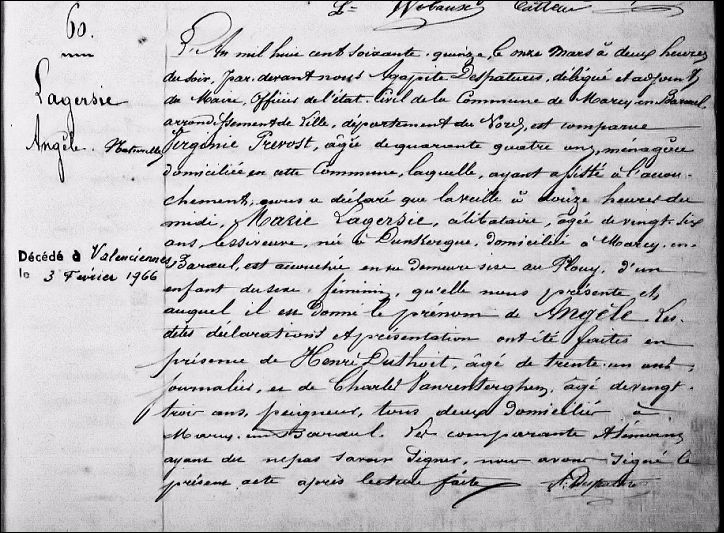 60.
Lagersie
Angèle. Naturelle
Décédé à Valenciennes
le 3 Février 1966
L'An mil huit cent soixante-quinze, le onze Mars à deux heures
du soir, par devant nous Agapite Despatures, délégué et adjoint
du Maire, Officier de l'état-Civil de la Commune de Marcq en Barœul,
arrondissement de Lille, département du Nord, est comparue
Virginie Prevost, âgée de quarante quatre ans, ménagère
domiciliée en cette Commune, laquelle, ayant assisté à l'accou-
chement, nous a déclaré que la veille à douze heures du
midi, Marie Lagersie, célibataire, âgée de vingt-six
ans lessiveuse, née à Dunkerque, domiciliée à Marcq-en-
Barœul, est accouchée en sa demeure sise au Plouy, d'un
enfant du sexe féminin, qu'elle nous présente et
auquel il est donné le prénom de Angèle. Les-
dites déclaration et présentation ont été faites en
présence de Henri Duthoit, âgé de trente-un ans,
journalier, et de Charles Vanrenterghem, âgé de vingt-
trois ans, peigneur, tous deux domiciliés à
Marcq-en-Barœul. Les comparante et témoins
ayant dit ne pas savoir signer, nous avons signé le
présent acte après lecture faite
A. Despatures